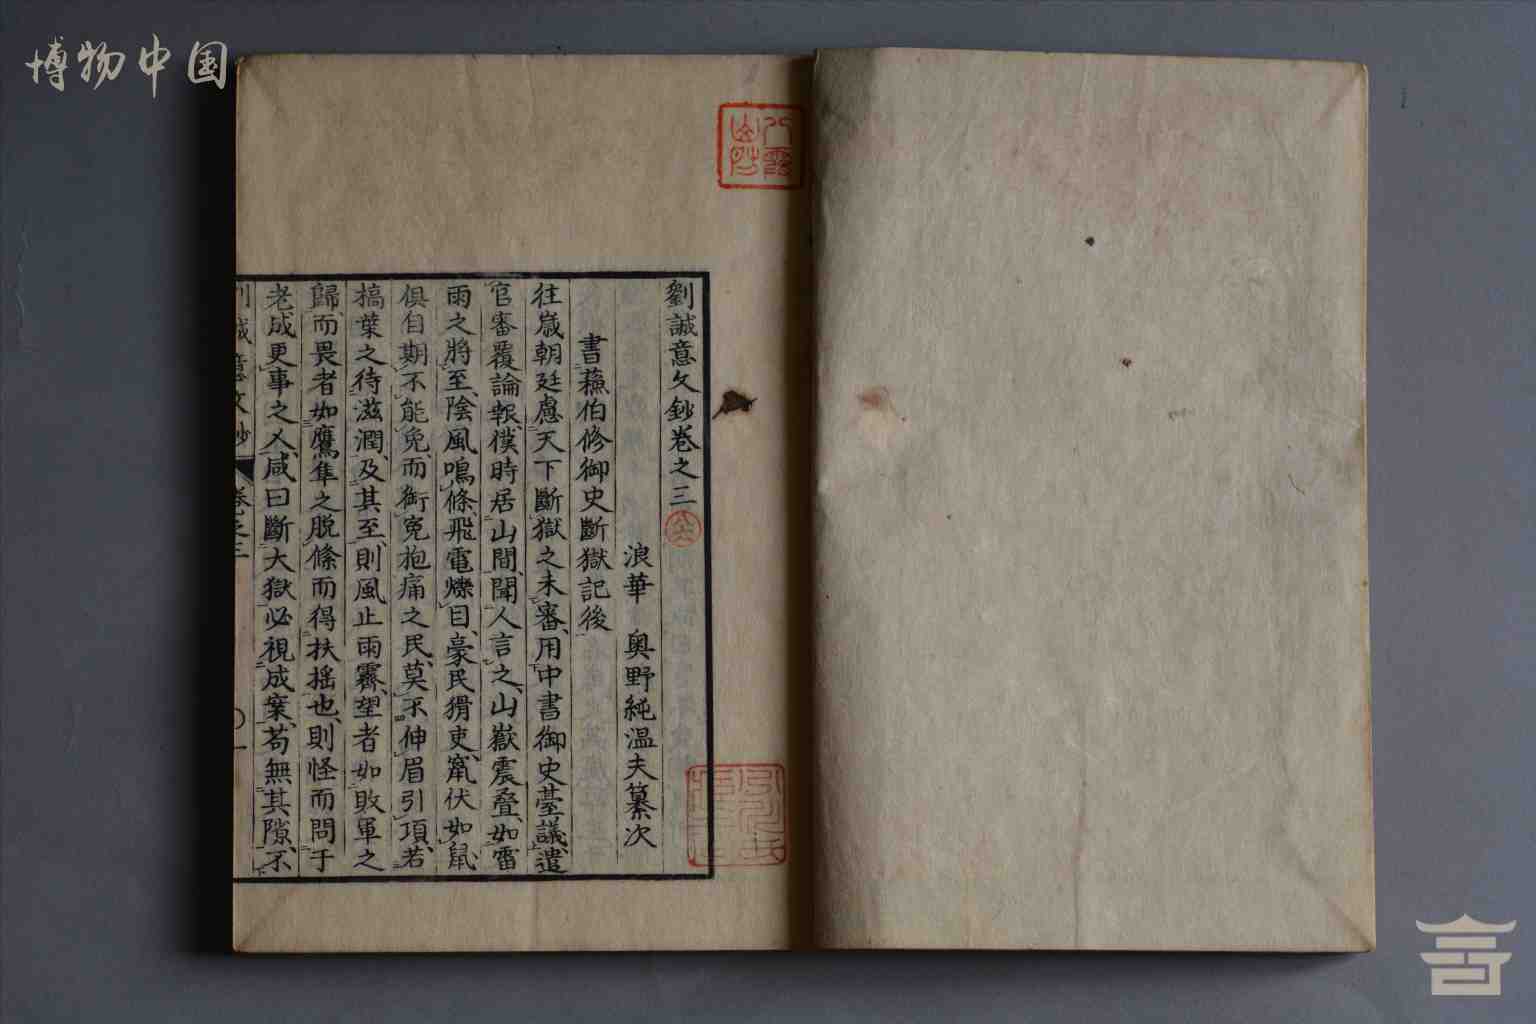 博物中国
劉誠意文鈔卷之三
浪華 奥野純溫夫纂次
書蘓伯修御史斷獄記後
往歳朝廷慮天下斷獄之未審用中書御史臺議遣
官審覆論報僕時居山間聞人言之山嶽震叠如雷
雨之將至陰風鳴條飛電爍目豪民猾吏竄伏如鼠
俱自期不能免而銜寃抱痛之民莫不伸眉引項若
槁葉之待滋潤及其至則風止雨霽望者如敗軍之
歸而畏者如鷹隼之脱絛而得扶摇也則怪而問于
老成更事之人咸曰斷大獄必視成案苟無其隙不
誠意文鈔 卷之三 〇一